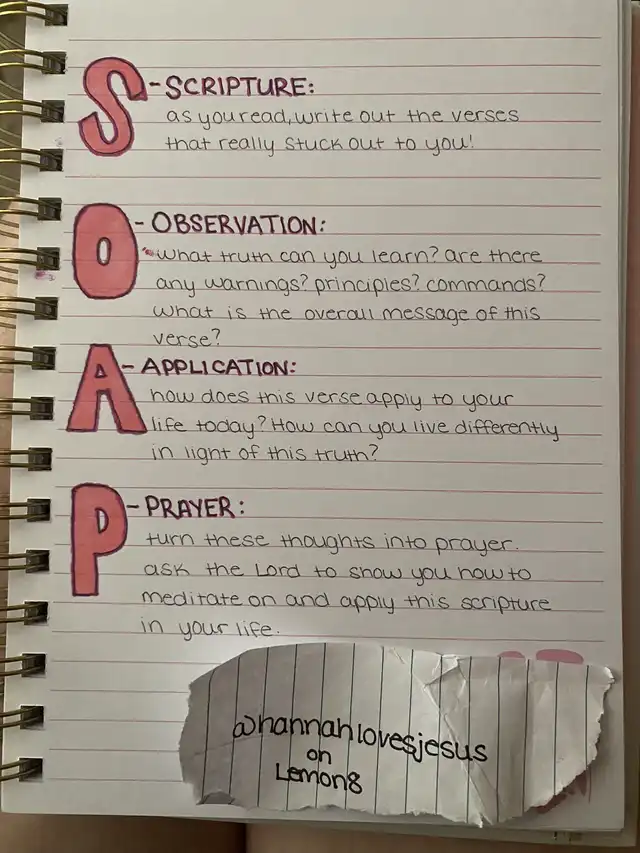 S - SCRIPTURE:
as you read, write out the verses
that really stuck out to you!
O - OBSERVATION:
what truth can you learn? are there
any warnings? principles? commands?
what is the overall message of this
verse?
A - APPLICATION:
how does this verse apply to your
life today? How can you live differently
in light of this truth?
P - PRAYER:
turn these thoughts into prayer.
ask the Lord to show you how to
meditate on and apply this scripture
in your life.
@hannahlovesjesus
on
Lemon8